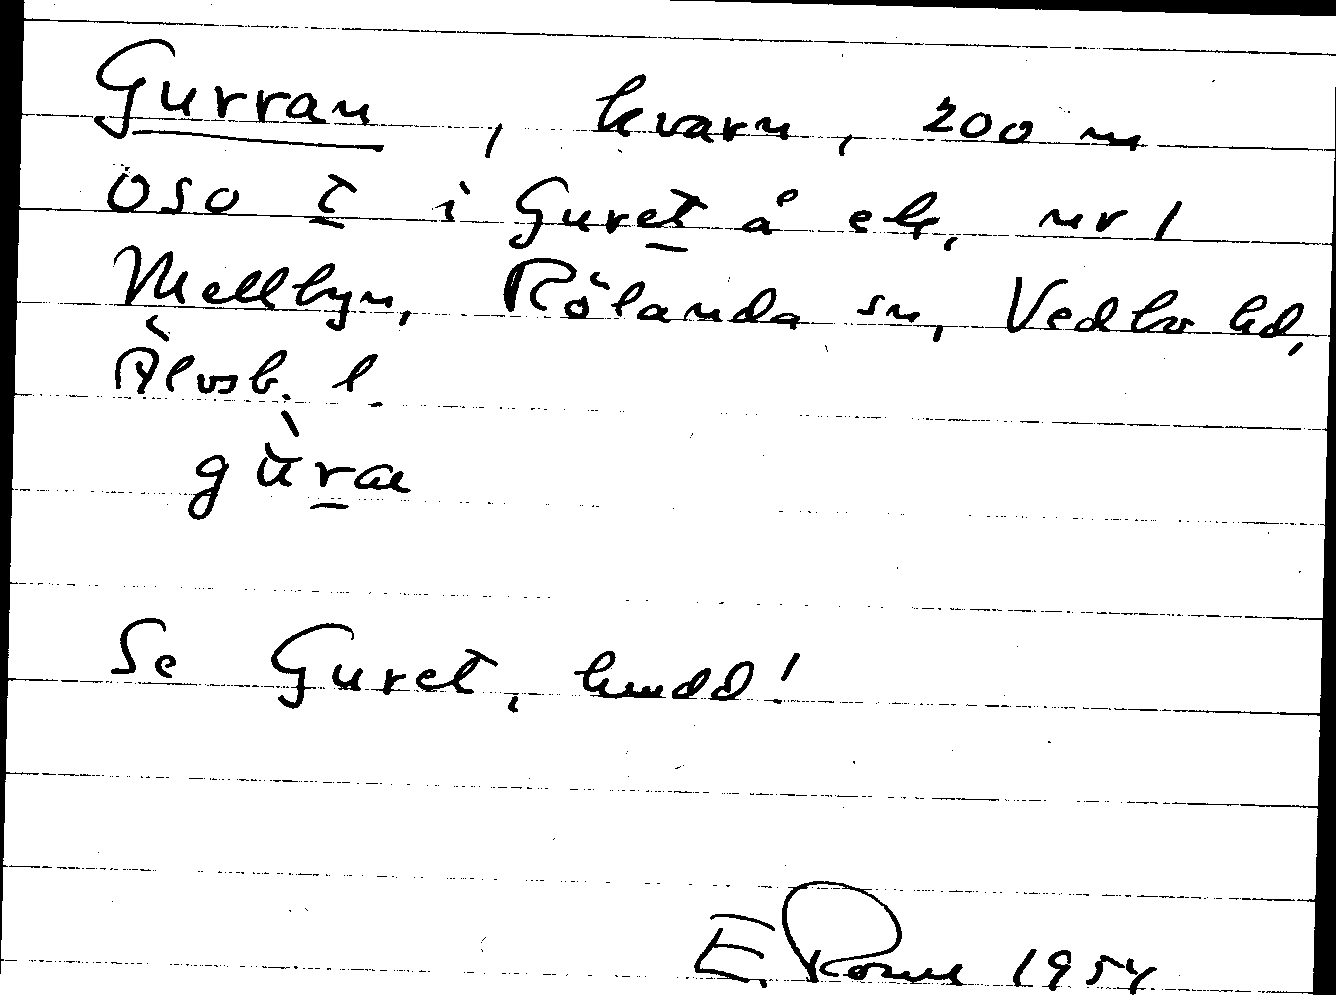 Gurran, kvarn, 200 m
OSO t i Guret å ek. nr 1
Mellbyn, Rölanda sn, Vedbo hd,
Älvsb. l.
Se Guret, hmdd!
E. 1954